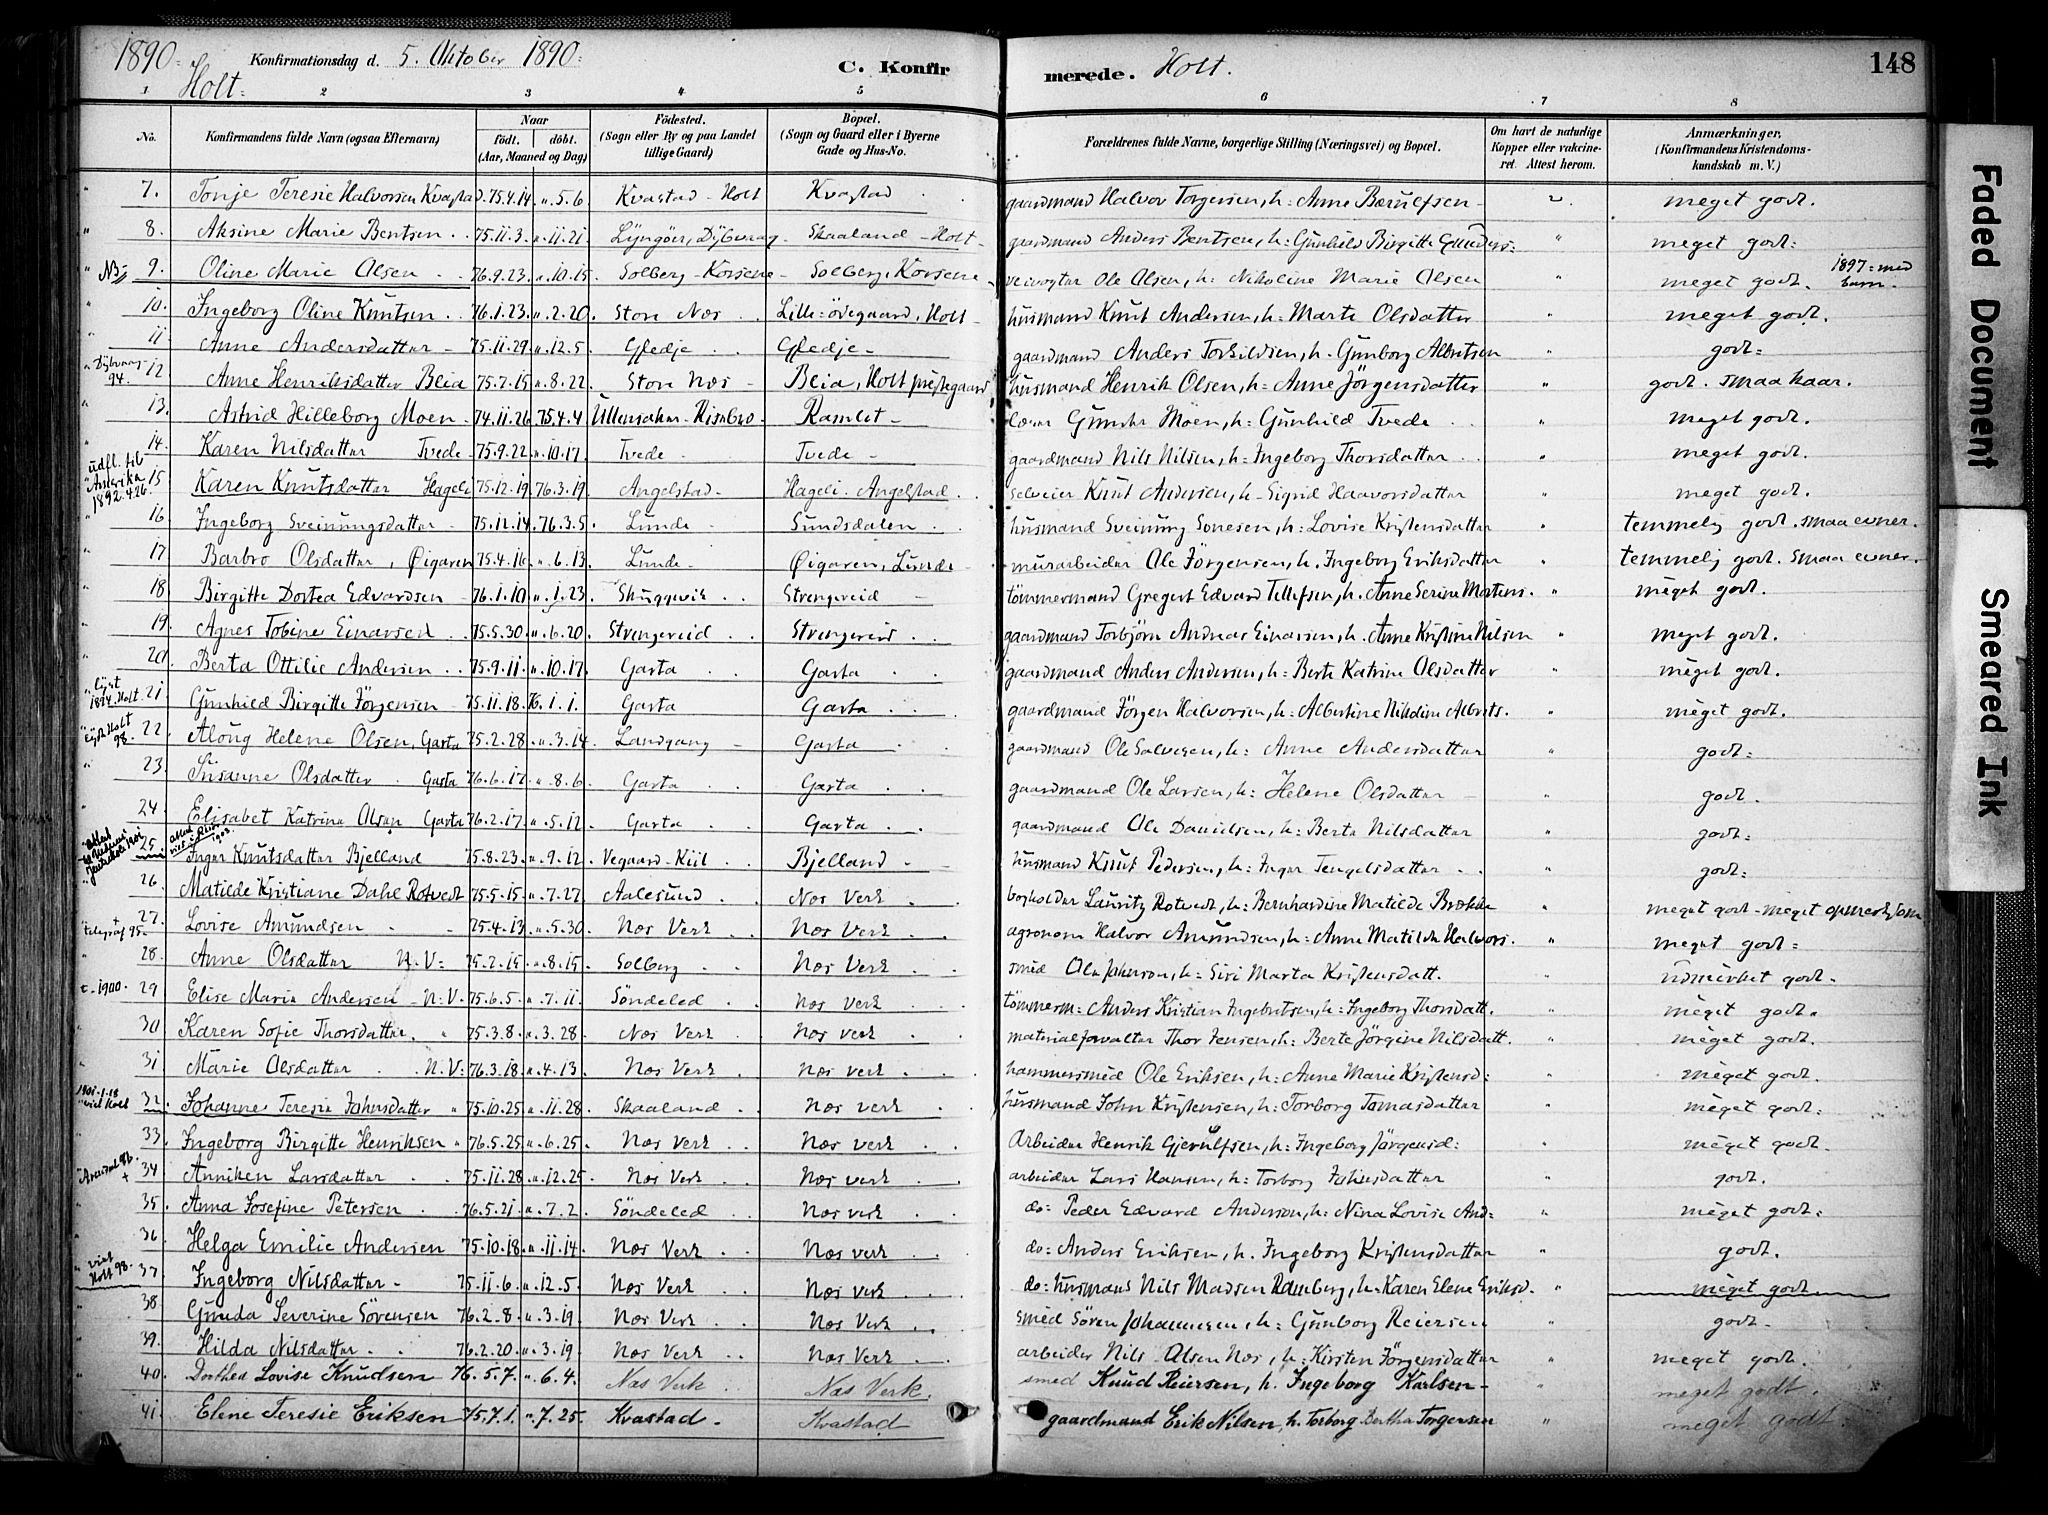 1890. Konfirmationsdag d. 5. Oktober 1890. C. Konfirmerede. Holt. 148
Holt.
1 2 3 4 5 6 7 8
No. Konfirmandens fulde Navn (ogsaa Efternavn) Naar født. døbt. (Aar, Maaned og Dag) Fødested. (Sogn eller By og paa Landet tillige Gaard) Bopæl. (Sogn og Gaard eller i Byerne Gade og Hus-No. Forældrenes fulde Navne, borgerlige Stilling (Næringsvei) og Bopæl. Om havt de naturlige Kopper eller vaccineret. Attest herom. Anmærkninger. (Konfirmandens Kristendomskundskab m. V.)
7. Tonje Teresie Halvorsen Kvastad. 75.4.14. ". 5.6. Kvastad - Holt Kvastad gaardmand Halvor Torgersen, h: Anne Bærulfsen - meget godt.
8. Aksine Marie Bentsen 75.11.3. ". 11.21. Lyngör, Dybvaag - Skaaland - Holt - gaardmand Anders Bentsen, h: Gunhild Birgitte Gunders: " meget godt:
NB 9. Oline Marie Olsen 76.9.23. ". 10.15. Solberg - Korsene - Solberg, Korsene veivogter Ole Olsen, h: Nikoline Marie Olsen " meget godt. 1897: med barn.
10. Ingeborg Oline Kuntsen 76.1.23. ". 2.20. Store Næs Lille-ödegaard, Holt - husmand Knut Andersen, h: Marte Olsdatter " meget godt.
11. Anne Andersdatter - 75.11.29. ". 12.5. Gjedje Gjedje - gaardmand Anders Torkildsen, h. Gunborg Albretsen " godt:
Dybvaag 94. 12. Anne Henriksdatter Bleia 75.7.15. ". 8.22. Store Næs - Bleia, Holt prestegaard husmand Henrik Olsen, h: Anne Jörgensdatter " godt. smaa kaar.
13. Astrid Hilleborg Moen - 74.11.26. 75.4.4. Ullensaker - Risebro - Ramlet - lærer Gunder Moen, h: Gunhild Tvede " meget godt.
14. Karen Nilsdatter Tvede - 75.9.22. ". 10.17. Tvede - Tvede - gaardmand Nils Nilsen, h: Ingeborg Thorsdatter " meget godt.
udfl. til Amerika 1892.4.26. 15. Karen Knutsdatter Hageli 75.12.19. 76.3.19. Angelstad. Hageli. Angelstad. selveier Knut Andersen, h - Sigrid Haavorsdatter " meget godt.
16. Ingeborg Sveinungsdatter - 75.12.14. 76.3.5. Lunde - Sundsdalen husmand Sveinung Sonesen, h: Lovise Kristensdatter " temmelig godt. smaa evner.
17. Barbro Olsdatter, Øigaren 75.4.16. ". 6.13. Lunde - Øigaren, Lunde - murarbeider Ole Jörgensen, h. Ingeborg Eriksdatter " temmelig godt. smaa evner.
18. Birgitte Dortea Edvardsen - 76.1.10. ". 1.23. Skuggevik Strengereid - tömmermand Gregert Edvard Tellefsen, h. Anne Serine Mortens. " meget godt.
19. Agnes Tobine Einarsen 75.5.30. ". 6.20. Strengereid Strengereid gaardmand Torbjörn Andreas Einarsen, h. Anne Kristine Nilsen " meget godt.
20. Berta Ottilie Andersen 75.9.11. ". 10.17. Garta Garta gaardmand Anders Andersen, h: Berte Katrine Olsdatter " meget godt.
lyst 1894. Holt. 21. Gunhild Birgitte Jörgensen - 75.11.18. 76.1.1. Garta Garta gaardmand Jörgen Halvorsen, h: Albertine Nikoline Albrets. " meget godt.
lyst Holt 98. 22. Aloug Helene Olsen, Garta 75.2.28. ". 3.14. Landgang - Garta gaardmand Ole Salvesen, h: Anne Andersdatter " godt:
23. Susanne Olsdatter Garta 76.6.17. ". 8.6. Garta Garta gaardmand Ole Larsen, h: Helene Olsdatter " godt.
24. Elisabet Katrine Olsen Garta 76.2.17. ". 5.12. Garta Garta gaardmand Ole Danielsen, h: Berta Nilsdatter " godt:
25. Inger Knutsdatter Bjelland 75.8.23. ". 9.12. Vegaard - Kiil Bjelland - husmand Knut Pedersen, h: Inger Tengelsdatter " godt:
26. Matilde Kristiane Dahl Rotvedt 75.5.15. ". 7.27. Aalesund Næs Verk bogholder Lauritz Rotvedt, h: Bernhardine Matilde Brekke " meget godt - meget opmerksom
+ telegraf 95. 27. Lovise Amundsen 75.4.13. ". 5.30. Næs Verk Næs Verk agronom Halvor Amundsen, h: Anne Matilde Halvors. " meget godt:
28. Anne Olsdatter N.V: 75.2.15. ". 8.15. Solberg Næs Verk smed Ole Johnson, h: Siri Marta Kristensdatt. udmerket godt.
t. 1900. 29. Elise Marie Andersen - N.V. 75.6.5. ". 7.11. Söndeled Næs verk tömmerm: Anders Kristian Ingebretsen, h: Ingeborg Thorsdatt. " meget godt.
30. Karen Sofie Thorsdatter " 75.3.8. ". 3.28. Næs Verk Næs verk materialforvalter Thor Jensen, h: Berte Jörgine Nilsdatt. " meget godt.
31. Marie Olsdatter N.V: 76.3.18. ". 4.13. Næs Verk Næs verk hammersmed Ole Eriksen, h: Anne Marie Kristensd: " meget godt.
1901.1.18 viet Holt 32. Johanne Teresie Johnsdatter " 75.10.25. ". 11.28. Skaaland Næs verk husmand John Kristensen, h: Torborg Tomasdatter " meget godt:
33. Ingeborg Birgitte Henriksen " 76.5.25. ". 6.25. Næs Verk Næs verk Arbeider Henrik Gjerulfsen, h: Ingeborg Jörgensd: " meget godt.
Arendal 96. + 34. Anniken Larsdatter 75.11.28. ". 12.25. Næs Verk Næs verk arbeider Lars Hansen, h: Torborg Johnsdatter " godt.
35. Anna Josefine Petersen 76.5.21. ". 7.2. Söndeled Næs verk do: Peder Edvard Anderson, h: Nina Lovise And: " meget godt:
36. Helga Emilie Andersen 75.10.18. ". 11.14. Næs Verk Næs verk do: Anders Eriksen, h. Ingeborg Kristensdatter " godt.
viet Holt 98. 37. Ingeborg Nilsdatter - 75.11.6. ". 12.5. Næs Verk Næs verk do: husmand Nils Madsen Ramberg, h. Karen Elene Eriksd. " meget godt
38. Gunda Severine Sörensen 76.2.8. ". 3.19. Næs Verk Næs Verk smed Sören Johannesen, h: Gunborg Reiersen " godt.
39. Hilda Nilsdatter 76.2.20. ". 3.19. Næs Verk Næs Verk arbeider Nils Olsen Næs, h: Kirsten Jörgensdatter " meget godt.
40. Dorthea Lovise Knudsen 76.5.7. ". 6.4. Næs Verk Næs Verk. smed Knud Reiersen, h. Ingeborg Karlsen - " meget godt.
41. Elene Teresie Eriksen 75.7.1. ". 7.25. Kvastad - Kvastad gaardmand Erik Nilsen, h. Torborg Berthea Torgersen " meget godt
Faded Document
Smeared Ink